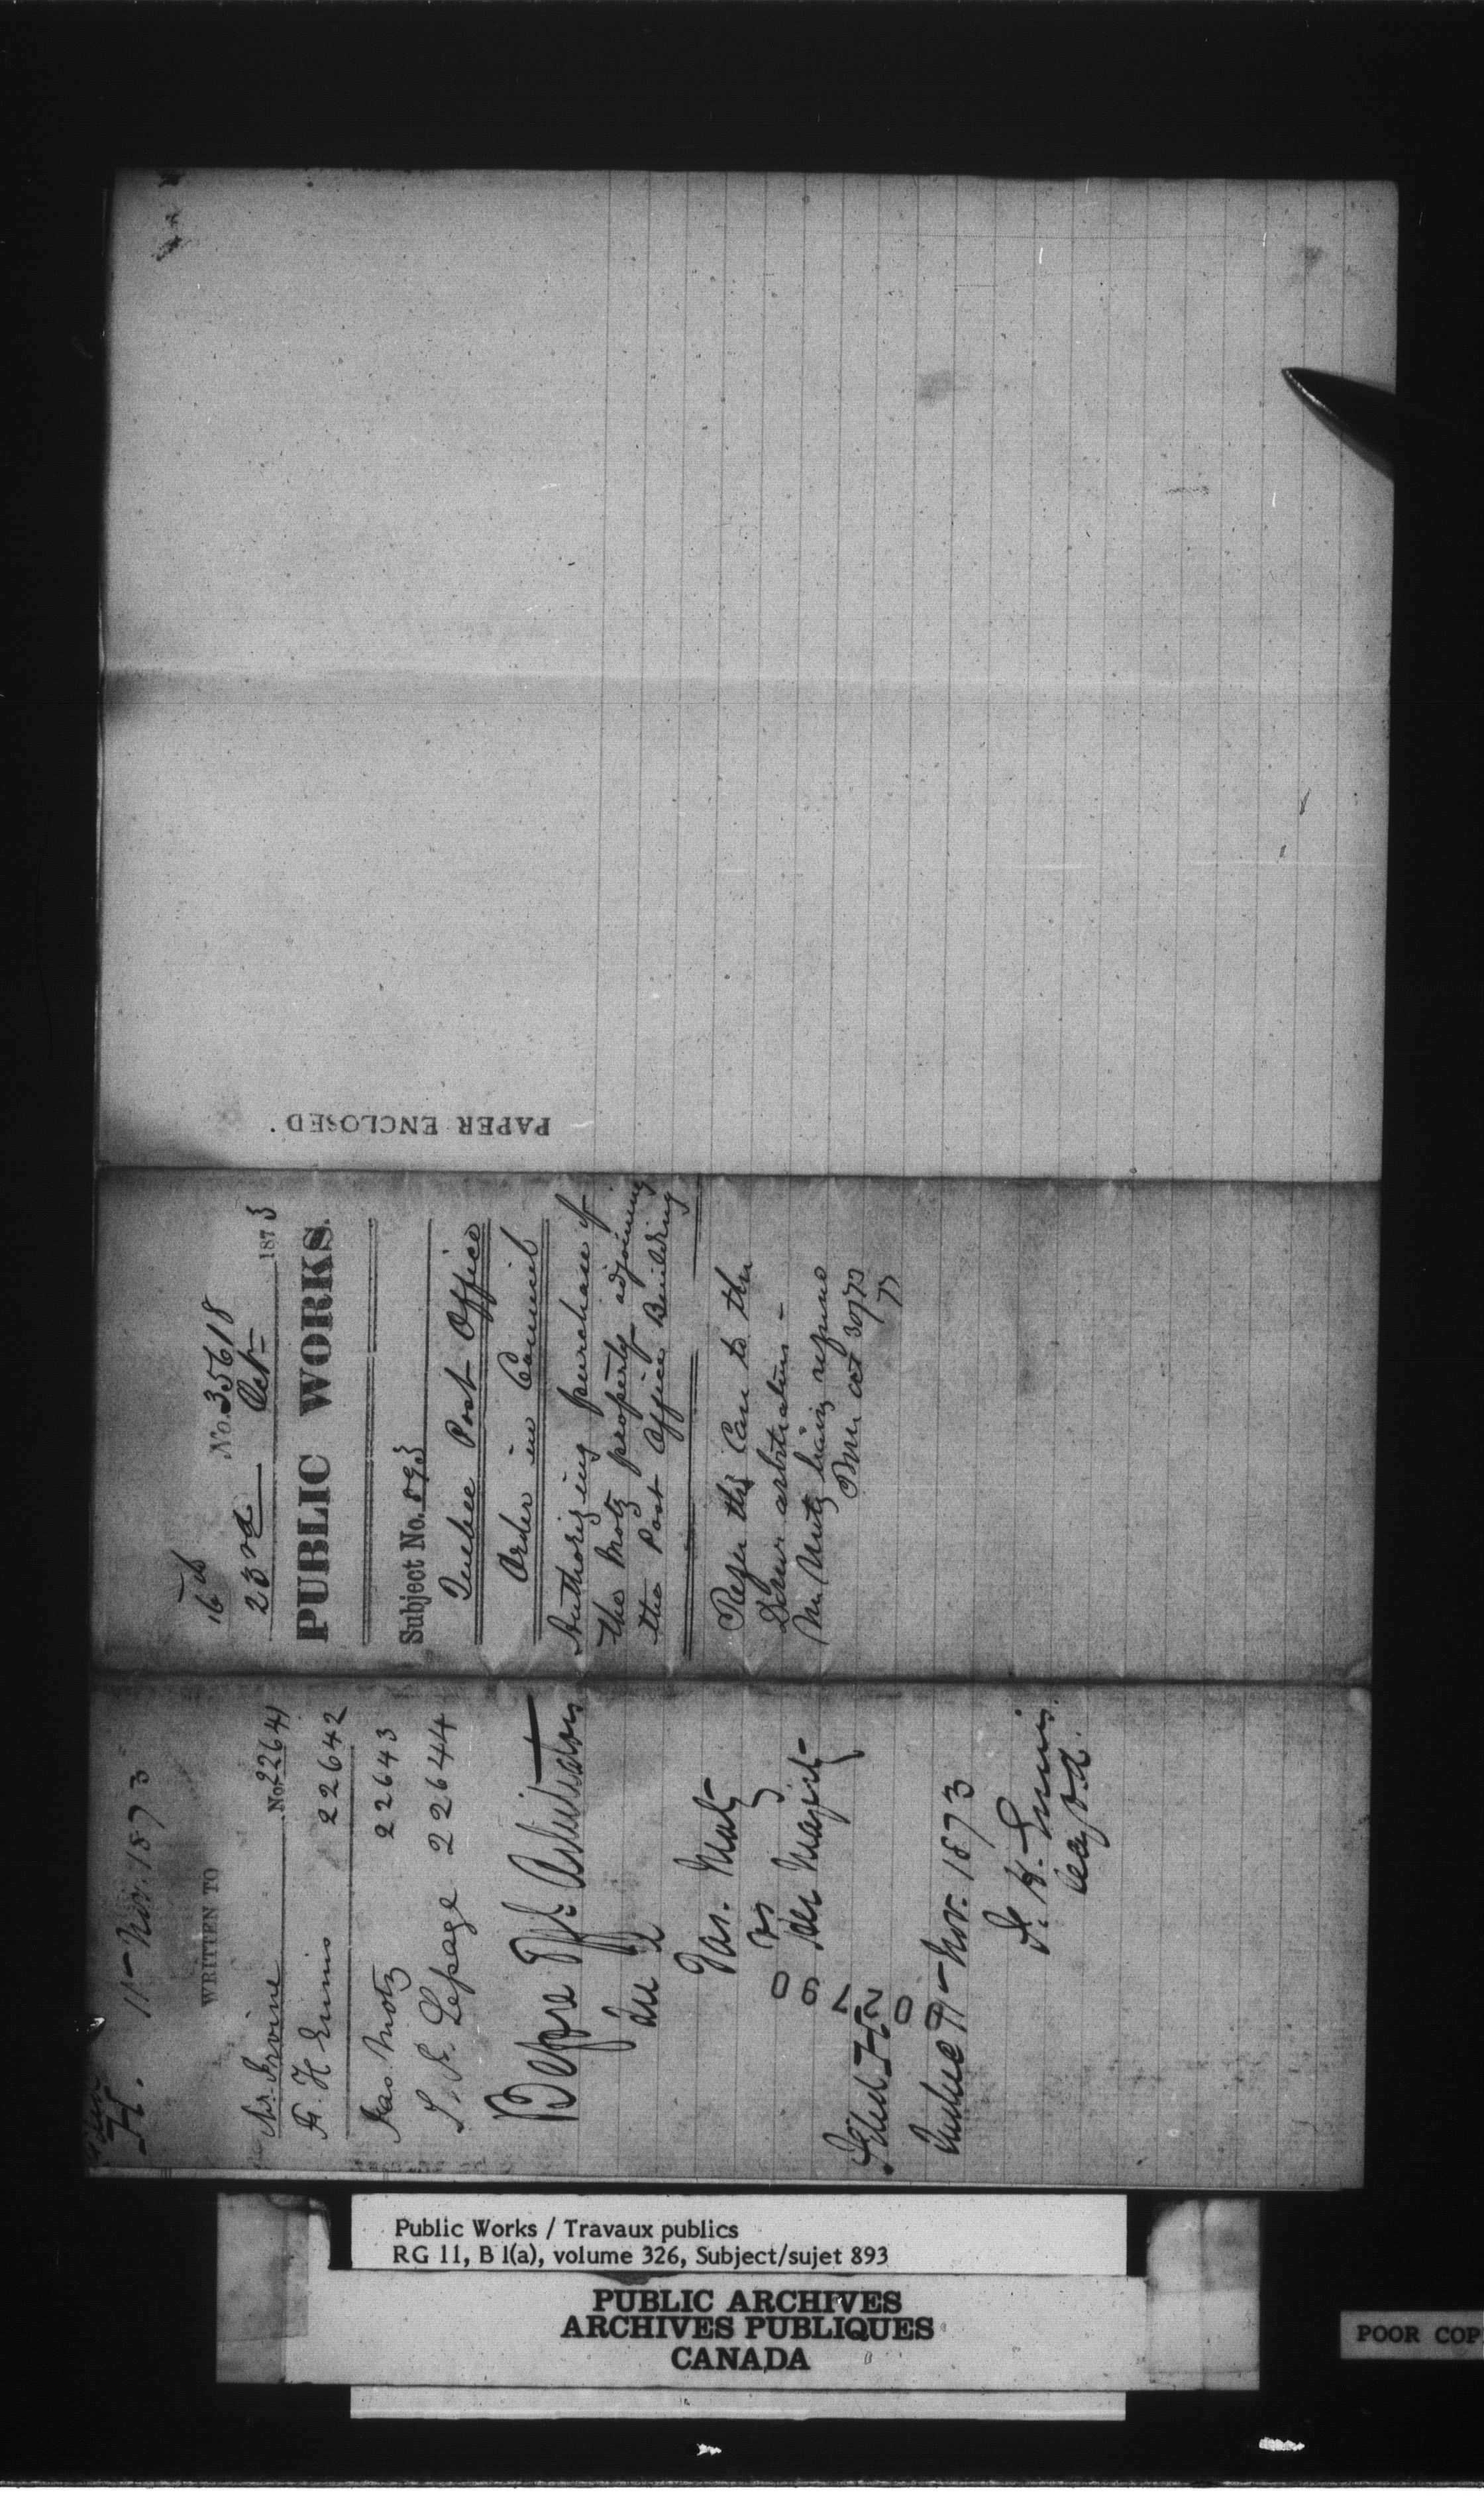 PAPER ENCLOSED.
16th
No. 35618
23rd Oct 1873
PUBLIC WORKS.
Subject No. 893
Quebec Post Office
Order in Council
Authorizing purchase of
the Motz property adjoining
the Post Office Building
Refer this Case to the
Domn arbitrators -
Mr Motz having refused
Oct 30/73
H.
11 Nov. 1873
WRITTEN TO
Mr. Irvine No. 22641
F. H Ennis 22642
Jas. Motz 22643
L. A. Lepage 22644
Before Off. Arbitrators
Jas. Motz
vs
Her Majesty
002790
Filed
Quebec 11 Nov. 1873
F. H. Ennis
Public Works / Travaux publics
RG 11, B 1(a), volume 326, Subject/sujet 893
PUBLIC ARCHIVES
ARCHIVES PUBLIQUES
CANADA
POOR COP